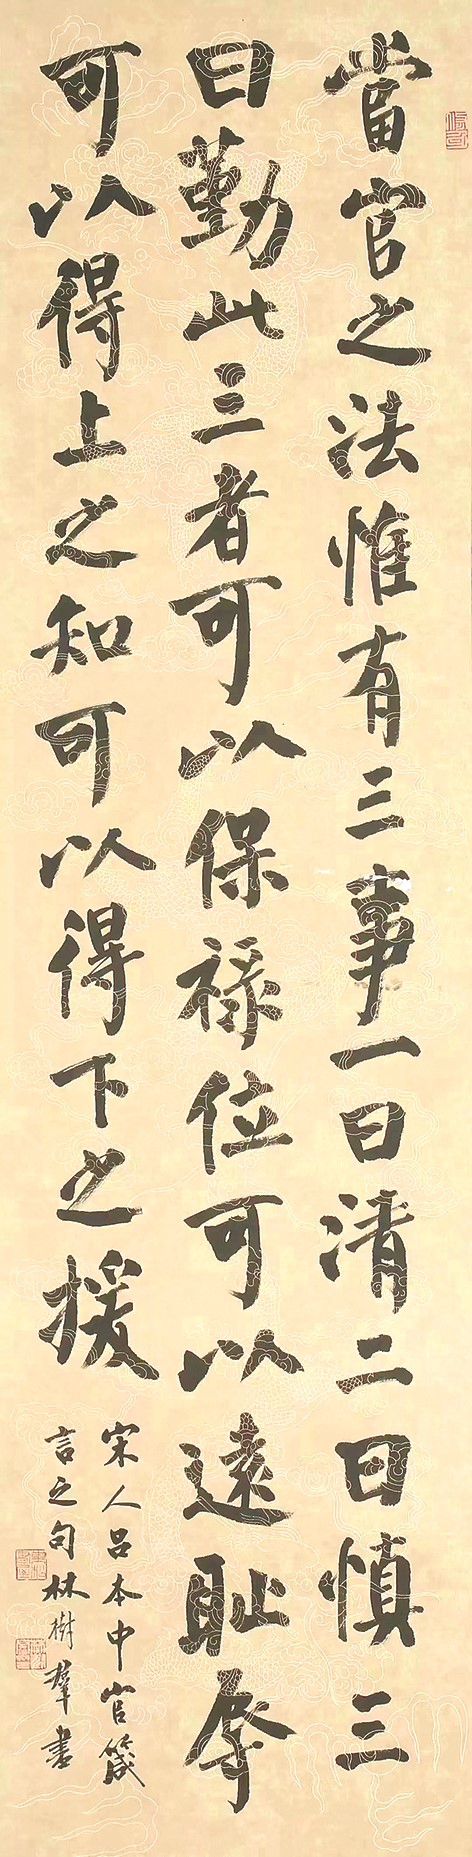 當官之法惟有三事一曰清二曰慎三
曰勤此三者可以保祿位可以遠恥辱
可以得上之知可以得下之援
宋人呂本中官箴
言之句林樹群書